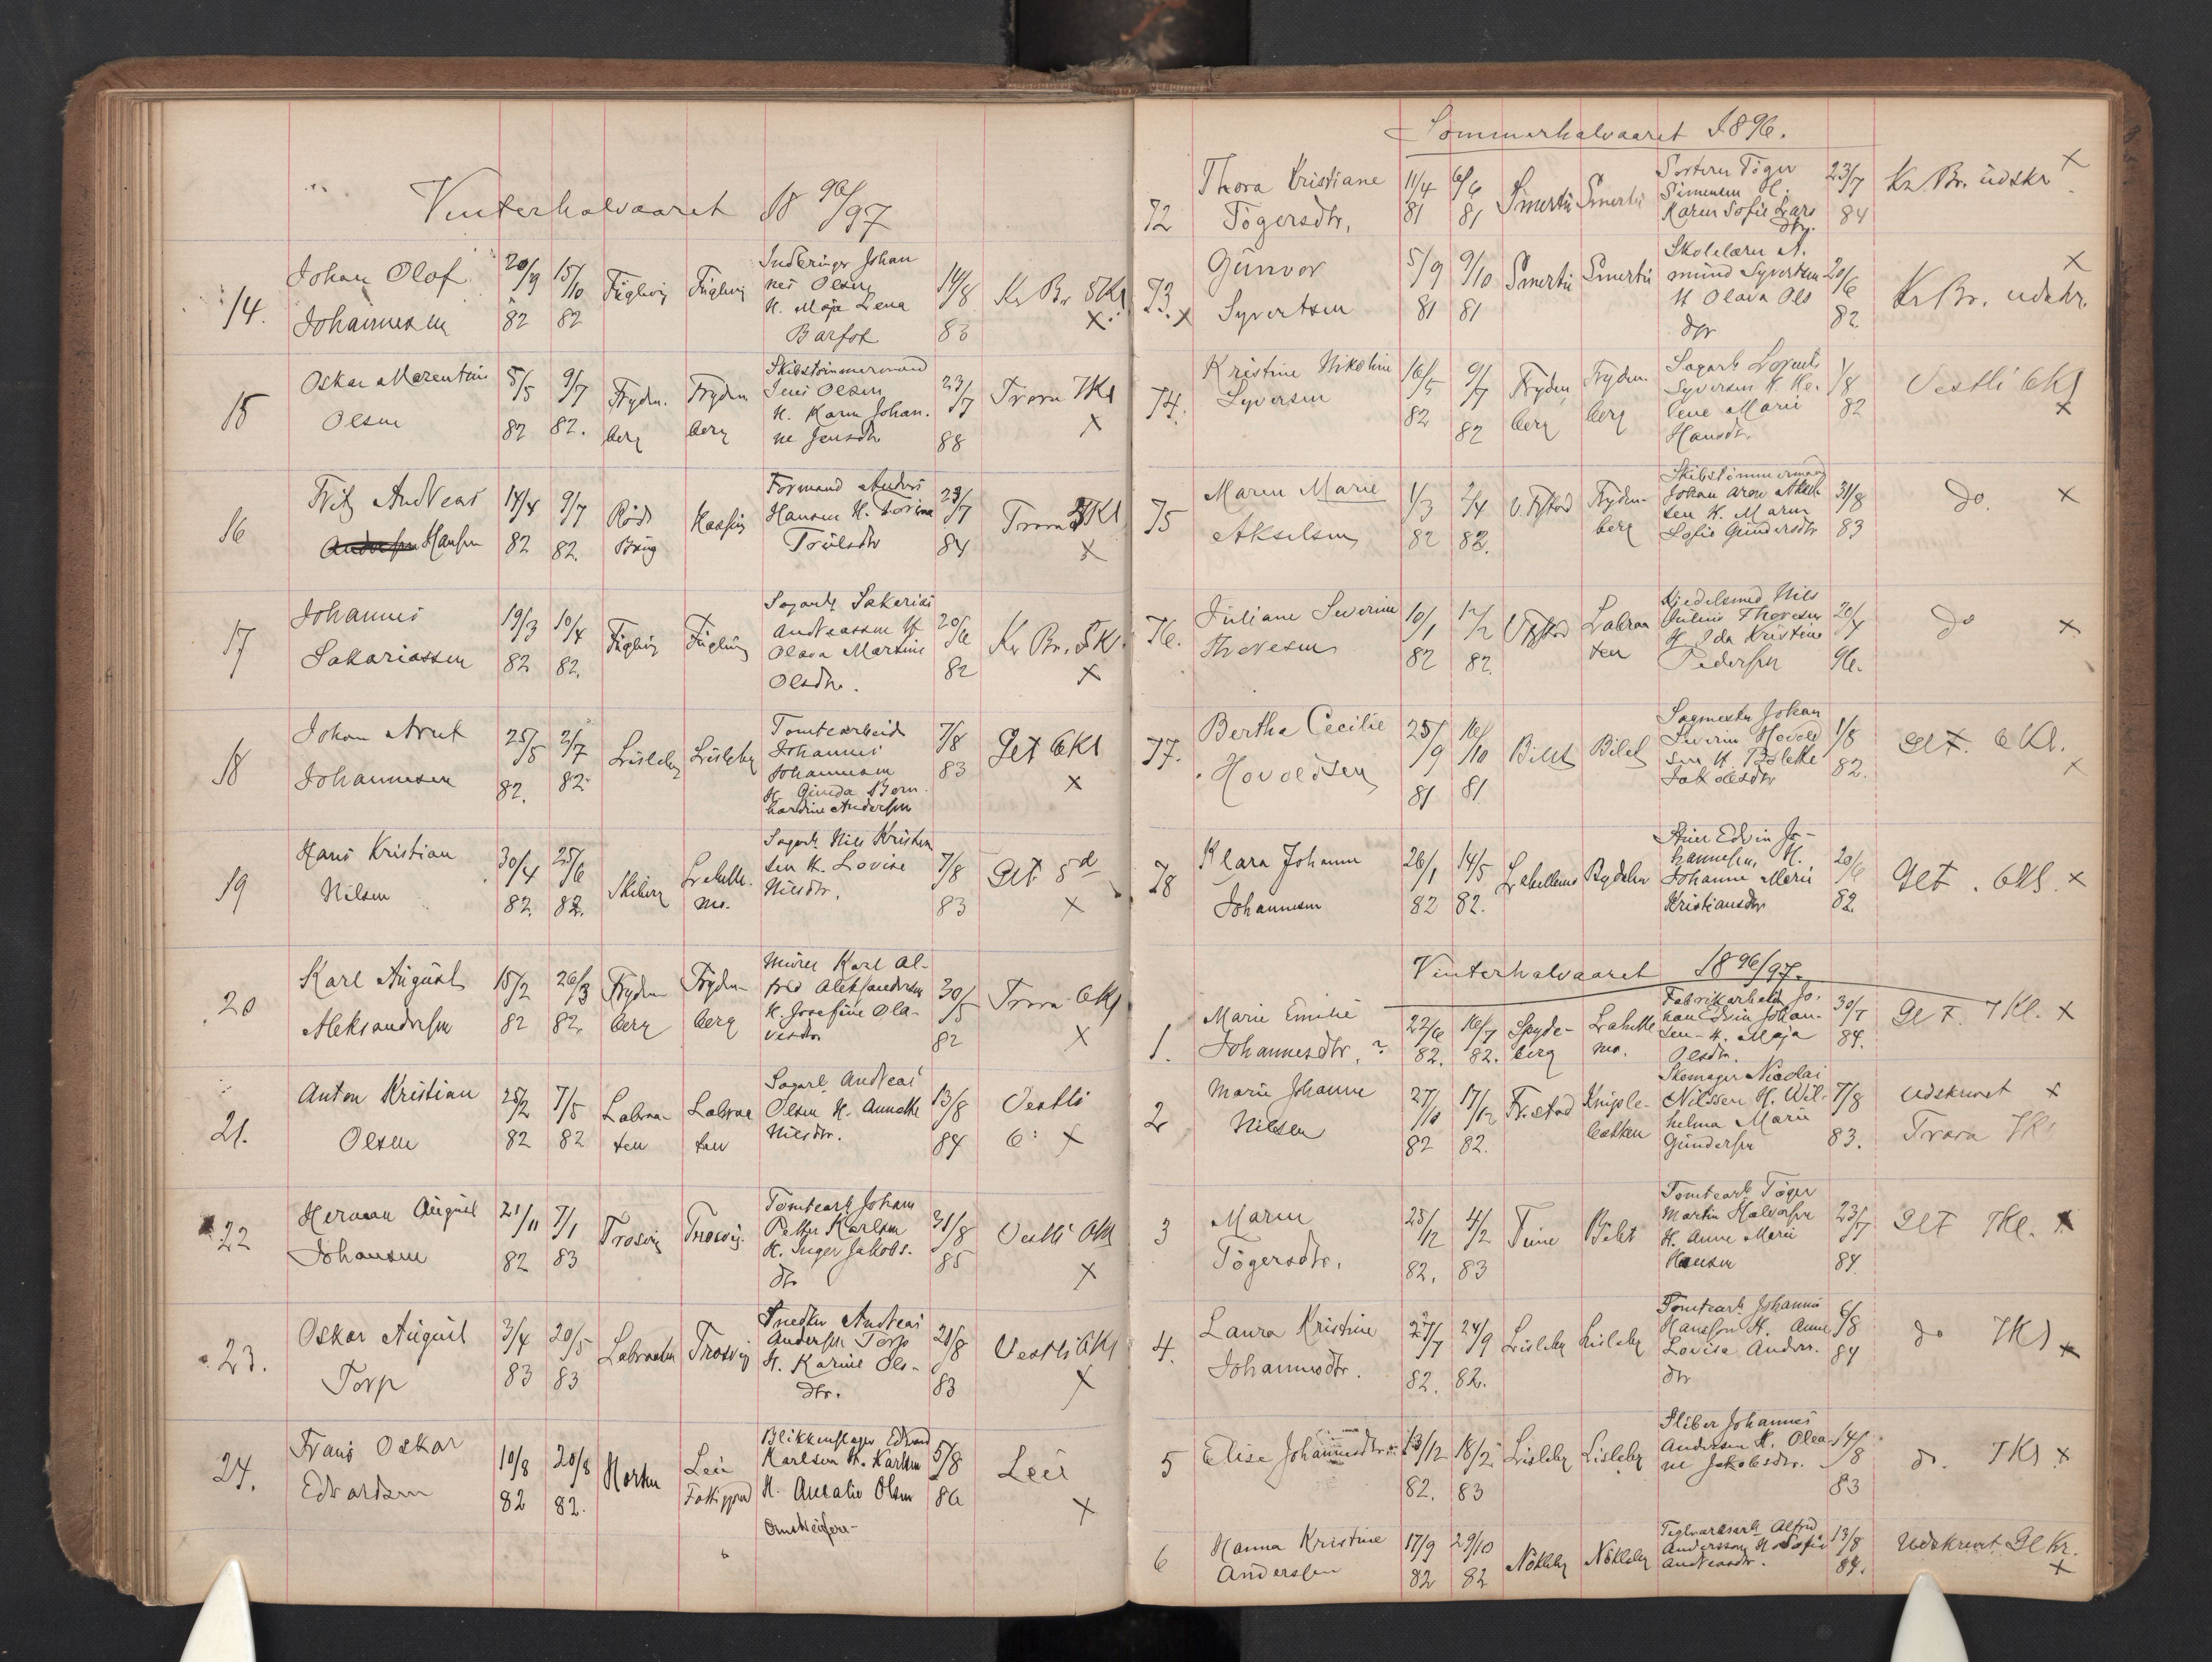 Vinterhalvaaret 18 96/97
14. Johan Olaf Johannesen 20/9 82 15/10 82 Fuglevig Fuglevig
Johan
nes Olsen
H. Maja Lena
Barfot
14/8 83 Kr Br. 5Kl x
15 Oskar Marentius Olsen 5/5 82 9/7 82. Fryden.
berg Fryden
berg
Skibstømmermand
Jens Olsen
H. Karen Johan.
ne Jensdtr
23/7 88 Trara 7Kl x
16 Fritz Andreas Hansen 14/4 82 9/7 82. Røds
Brug
Formand Anders
Hansen H.
Trulsdtr
23/7 84 Trara Kl x
17 Johannes Sakariassen 19/3 82 10/4 82. Fuglevig Fuglevig
Sagarb. Sakarias
Andreassen H
Olava Martine
Olsdtr.
20/6 82 Kr Br. 5Kl. x
18 Johan Arnt Johannesen 25/5 82. 2/7 82. Lisleby Lisleby
Tomtearbeid
Johannes
Johannesen
H. Gunda Bern.
hardine Andersen
7/8 83 Glt 6Kl x
19 Hans Kristian Nilsen 30/4 82. 25/6 82. Skiberg Lahelle.
mo.
Sagarb. Nils Kristen
sen H. Lovise
Nilsdtr.
7/8 83 Glt 5 x
20 Karl August Aleksandersen 15/2 82 26/3 82. Fryden
berg Fryden-
berg
Murer Karl Al-
fred Aleksandersen
H. Josefine Ola-
vesdtr
30/5 82 Trara 6Kl x
21. Anton Kristian Olsen 25/2 82 7/5 82 Labraa
ten Labraa
ten
Sagarb. Andreas
Olsen H. Annette
Nilsdtr.
13/8 84 Vestli 6 x
22 Herman August Johansen 21/11 82 7/1 83 Trosvig Trosvig.
Tomtearb. Johan
Petter Karlsen
H. Inger Jakobs-
dtr
31/8 85 Vestli 6Kl x
23. Oskar August Torp 3/4 83 20/5 83 Labraaten Trosvig
Snedker Andreas
Andersen Torp
H. Karine Ols-
dtr.
21/8 83 Vestli 6Kl x
24. Frans Oskar Edvardsen 10/8 82 20/8 82. Horten Leie
Blikkenslager Edvard
Karlsen H. Karlsen
H. Olsen
5/8 86 Leie x
Sommerhalvaaret 1896.
72 Thora Kristiane Tögersdtr. 11/4 81 6/6 81 Smertu Smertu
Sorterer Töger
Simensen H.
Karen Sofie Lars
dtr.
23/7 84 Kr Br. udskr x
73. x Gunvor Syvertsen 5/9 81 9/10 81 Smertu Smertu
Skolelærer A.
mund Syvertsen
H Olava Ols
dtr
20/6 82. Kr Br. udskr. x
74. Kristine Nikoline Syversen 16/5 82 9/7 82 Fryden
berg Fryden-
berg
Sagarb
Syversen H. He.
lene Marie
Hansdtr.
1/8 82 Vestli 6Kl x
75 Maren Marie Akselsen 1/3 82 2/4 82. Fryden-
berg
Skibstömmermand
Johan Aron Aksel
sen H. Maren
Sofie Gundersdtr
31/8 83 do. x
76. Juliane Severine Thoresen 10/1 82 12/2 82. Labraa
ten
Kjedelsmed Nils
Julius Thoresen
H. Ida Kristine
Pedersen
20/4 96. do x
77. Bertha Cecilie Hovoldsen 25/9 81 16/10 81 Bilet Bilet
Sagmester Johan
Severin Hovold
sen H. Bolette
Jakobsdtr
1/8 82. Glt. 6 Kl. x
78 Klara Johanne Johannesen 26/1 82 14/5 82. Lahellemo Rydelen
Edvin Jo-
hannesen, H.
Johanne Marie
Kristiansdtr
20/6 82. Glt. 6Kl. x
Vinterhalvaaret 1896/97.
1. Marie Emilie Johannesdtr. ? 22/6 82. 16/7 82. Spyde-
berg Lahelle
mo.
Fabrikarbeid. Jo.
han Edvin Johan-
sen - H. Maja
Olsdtr.
30/7 84. Glt 7Kl. x
2 Marie Johanne Nilsen 27/10 82 17/12 82. Fr.stad Kniple-
bakken
Skomager Nicolai
Nilssen H. Wil-
helma Marie
Gundersen
7/8 83. Udskrevet x
Trara 7Kl
3 Maren Tögersdtr. 25/12 82. 4/2 83 Tune Bilet
Tomtearb Töger
Martin Halvorsen
H. Anne Marie
Hansen
23/7 84. Glt 7Kl. x
4. Laura Kristine Johannesdtr. 27/7 82. 24/9 82. Lisleby Lisleby
Tomtearb. Johannes
Hansen H. Anne
Lovise Anders.
dtr
6/8 84 do 7Kl x
5 Elise Johannesdtr 13/12 82. 18/2 83 Lisleby Lisleby
Sliber Johannes
Andersen H. Olea-
ne Jakobsdtr.
14/8 83 do. 7Kl x
6 Hanna Kristine Anderssen 17/9 82 29/10 82 Nökleby Nökleby
Teglværksarb Alfred
Anderssen H Sofie
Andreasdtr.
13/8 84. Udskrevet Gl Kr. x